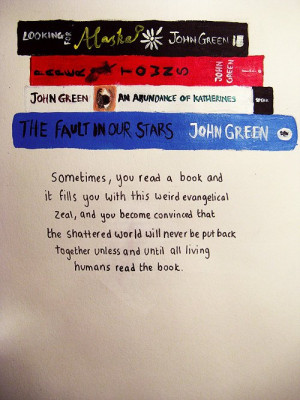 LOOKING FOR Alaska JOHN GREEN
PAPER TOWNS JOHN GREEN
JOHN GREEN AN ABUNDANCE OF KATHERINES
THE FAULT IN OUR STARS JOHN GREEN
Sometimes, you read a book and
it fills you with this weird evangelical
zeal, and you become convinced that
the shattered world will never be put back
together unless and until all living
humans read the book.